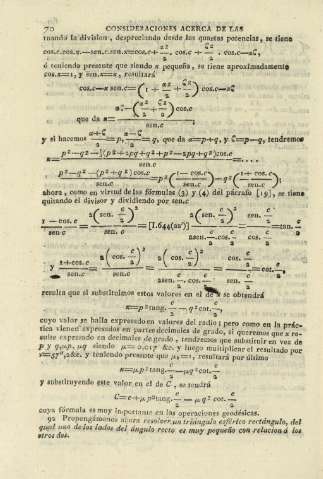 70 CONSIDERACIONES ACERCA DE LAS
tuando la division, despreciando desde las quartas potencias, se tiene
cos.c.cos.x.—sen.c.sen.x=cos.c+ α²/2 . cos.c + ζ²/2 . cos.c—αζ,
ó teniendo presente que siendo x pequeña, se tiene aproximadamente
cos.x=1, y sen.x=x, resultará
cos.c—x sen.c=(1 + α²/2 + ζ²/2) cos.c—αζ
que da x= (αζ—(α²/2 + ζ²/2) cos.c)/sen.c
y si hacemos (α+ζ)/2 =p, (α—ζ)/2 =q, que da α=p+q, y ζ=p—q, tendremos
x= (p²—q²—½(p²+2pq+q²+p²—2pq+q²)cos.c)/sen.c =....
(p²—q²—(p²+q²)cos.c)/sen.c =p²((1—cos.c)/sen.c)—q²((1+cos.c)/sen.c);
ahora, como en virtud de las fórmulas (3) y (4) del párrafo [19], se tiene
quitando el divisor y dividiendo por sen.c
(1—cos.c)/sen.c = 2(sen. c/2)²/sen.c =[1.644(aa')] = 2(sen. c/2)²/(2sen. c/2 cos. c/2) = sen. c/2 / cos. c/2 =tan. c/2
y (1+cos.c)/sen.c = 2(cos. c/2)²/sen.c = 2(cos. c/2)²/(2sen. c/2 cos. c/2) = cos. c/2 / sen. c/2 =cot. c/2,
resulta que si substituimos estos valores en el de x se obtendrá
x=p² tang. c/2 — q² cot. c/2,
cuyo valor se halla expresado en valores del radio; pero como en la prác-
tica vienen expresados en partes decimales de grado, si queremos que x re-
sulte expresado en decimales de grado, tendremos que substituir en vez de
p y q, μp, μq siendo μ= 0,017 &c. y luego multiplicar el resultado por
ν=57°,2&c. y teniendo presente que μν=1, resultará por último
x=μ p² tang. c/2 —μ q² cot. c/2
y substituyendo este valor en el de C, se tendrá
C=c+μ p² tang. c/2 — μ q² cot. c/2
cuya fórmula es muy importante en las operaciones geodésicas.
92 Propongámonos ahora resolver un triángulo esférico rectángulo, del
qual uno de los lados del ángulo recto es muy pequeño con relacion á los
otros dos.